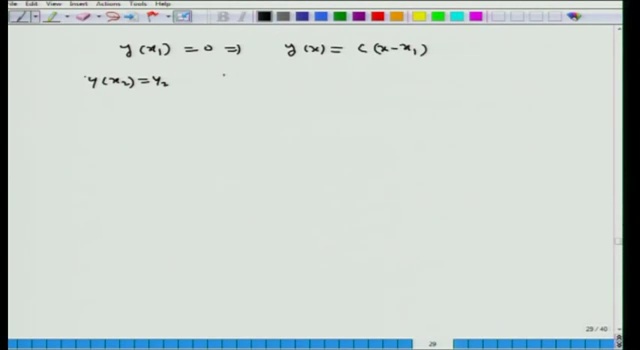 Edit View Insert Actions Tools Help
y(x₁) = 0 ⇒ y(x) = C(x-x₁)
y(x₂) = y₂
29 / 40
29